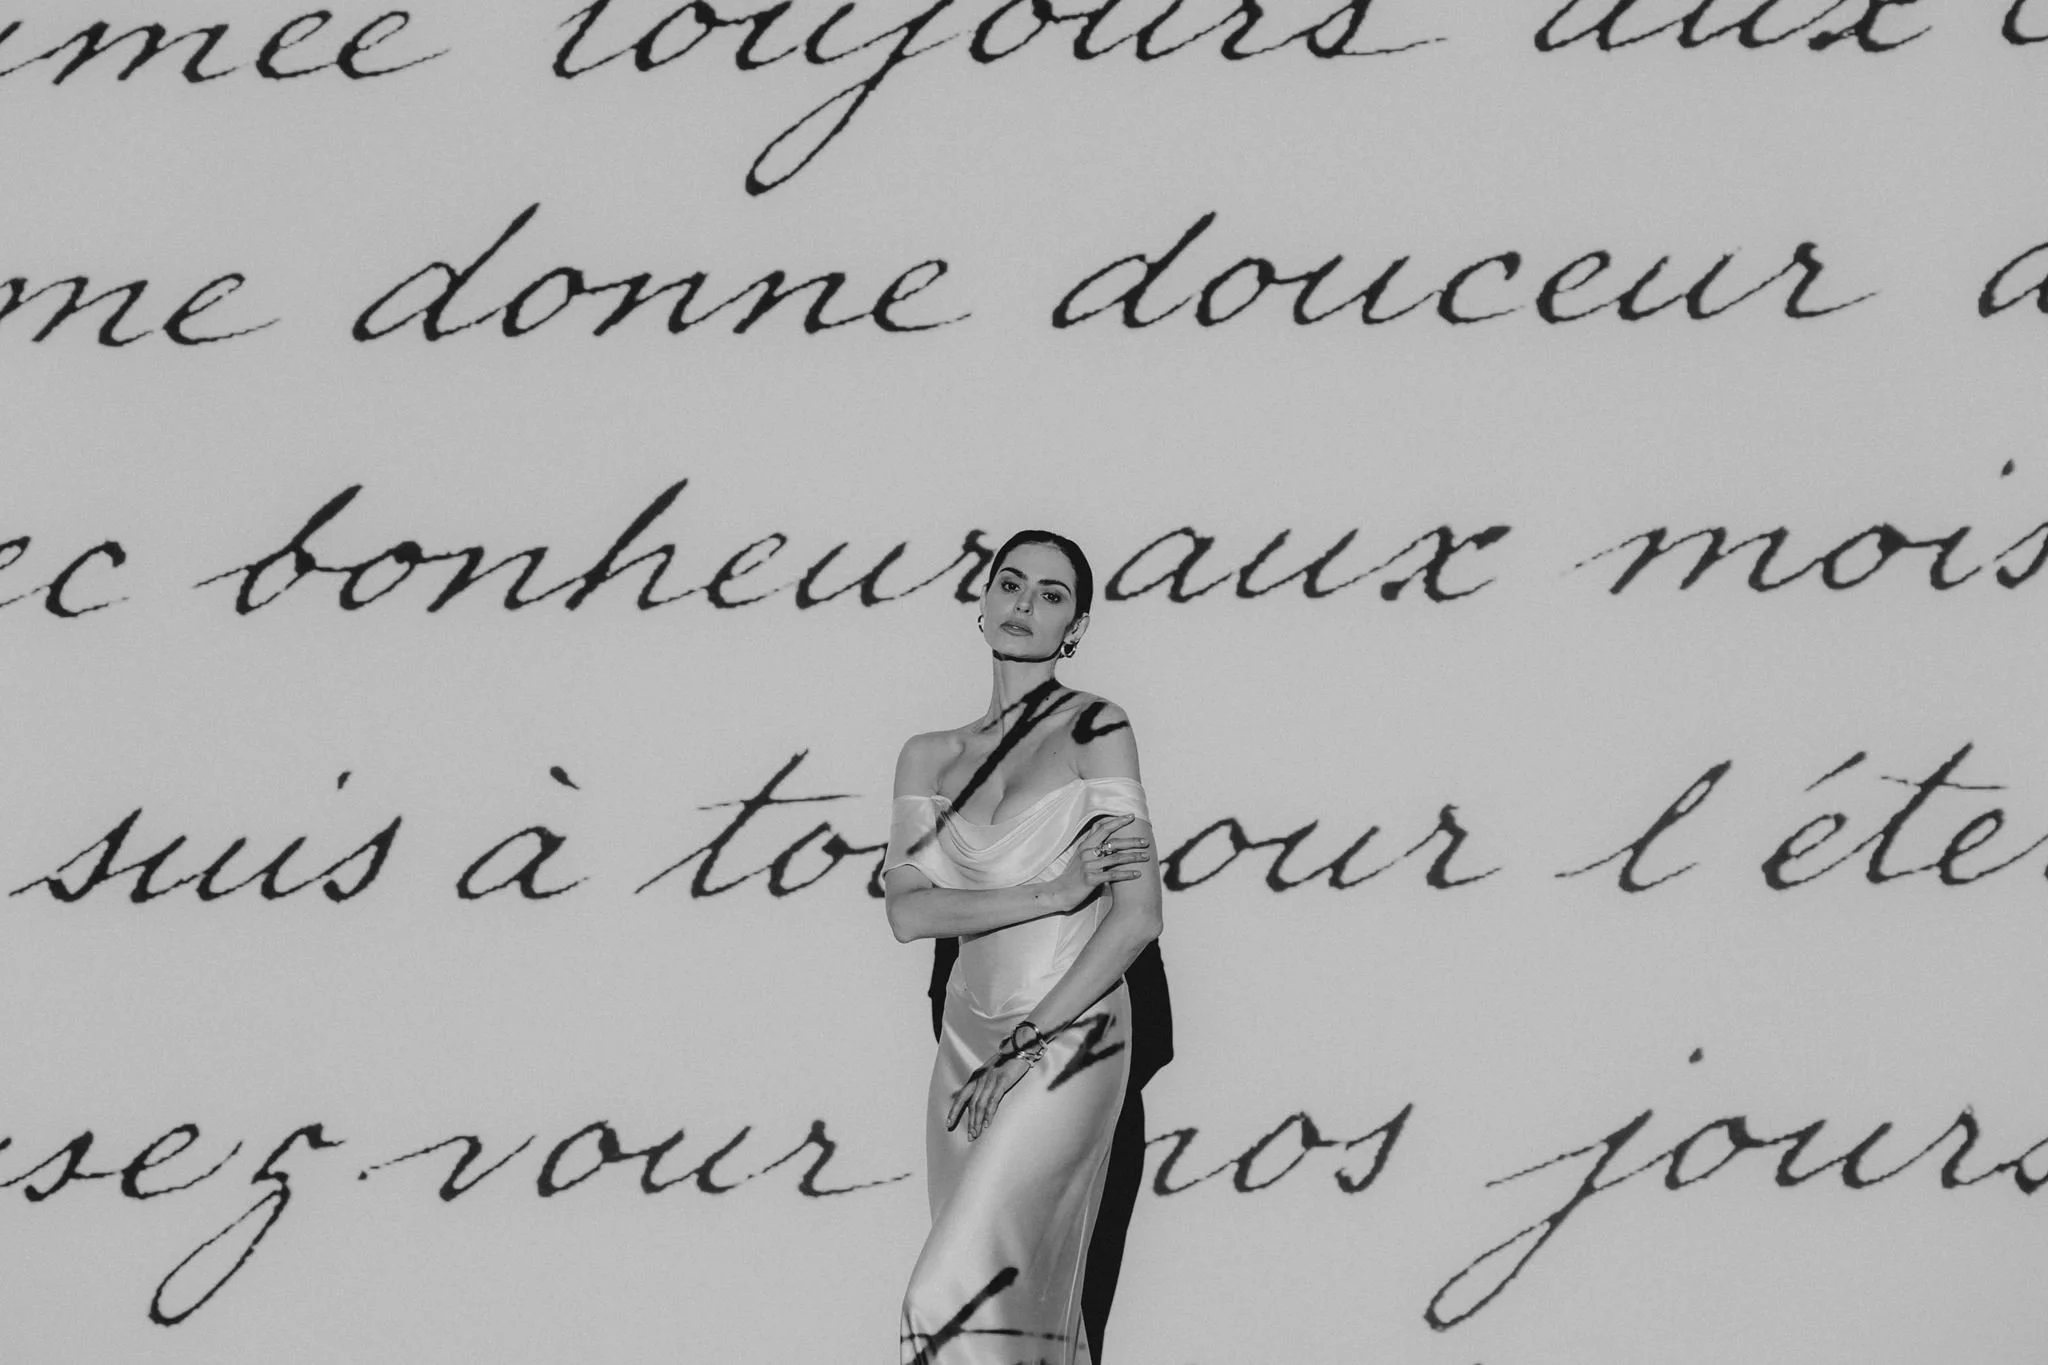 toujours aux
me donne douceur
bonheur aux mois
suis à pour l'éter
vour nos jours